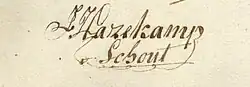 J Hazekamp
Schout